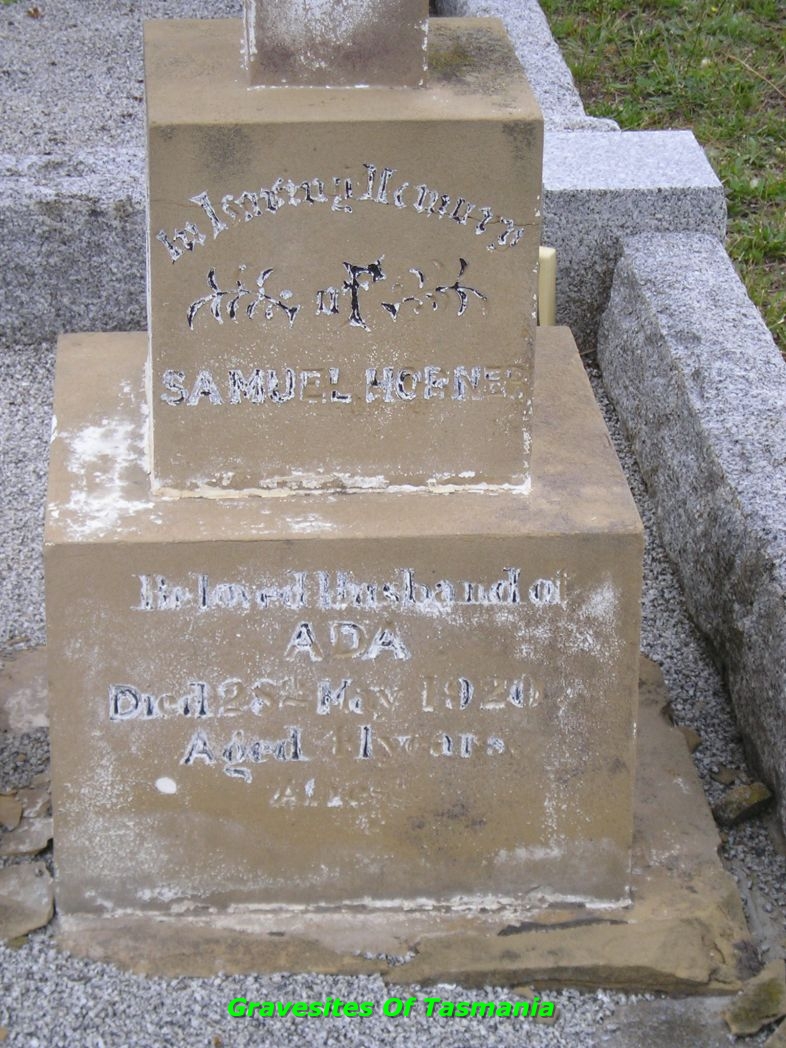 In Loving Memory
of
SAMUEL HORNER
Beloved Husband of
ADA
Died 28th May 1920
Aged 41 years
At rest
Gravesites Of Tasmania